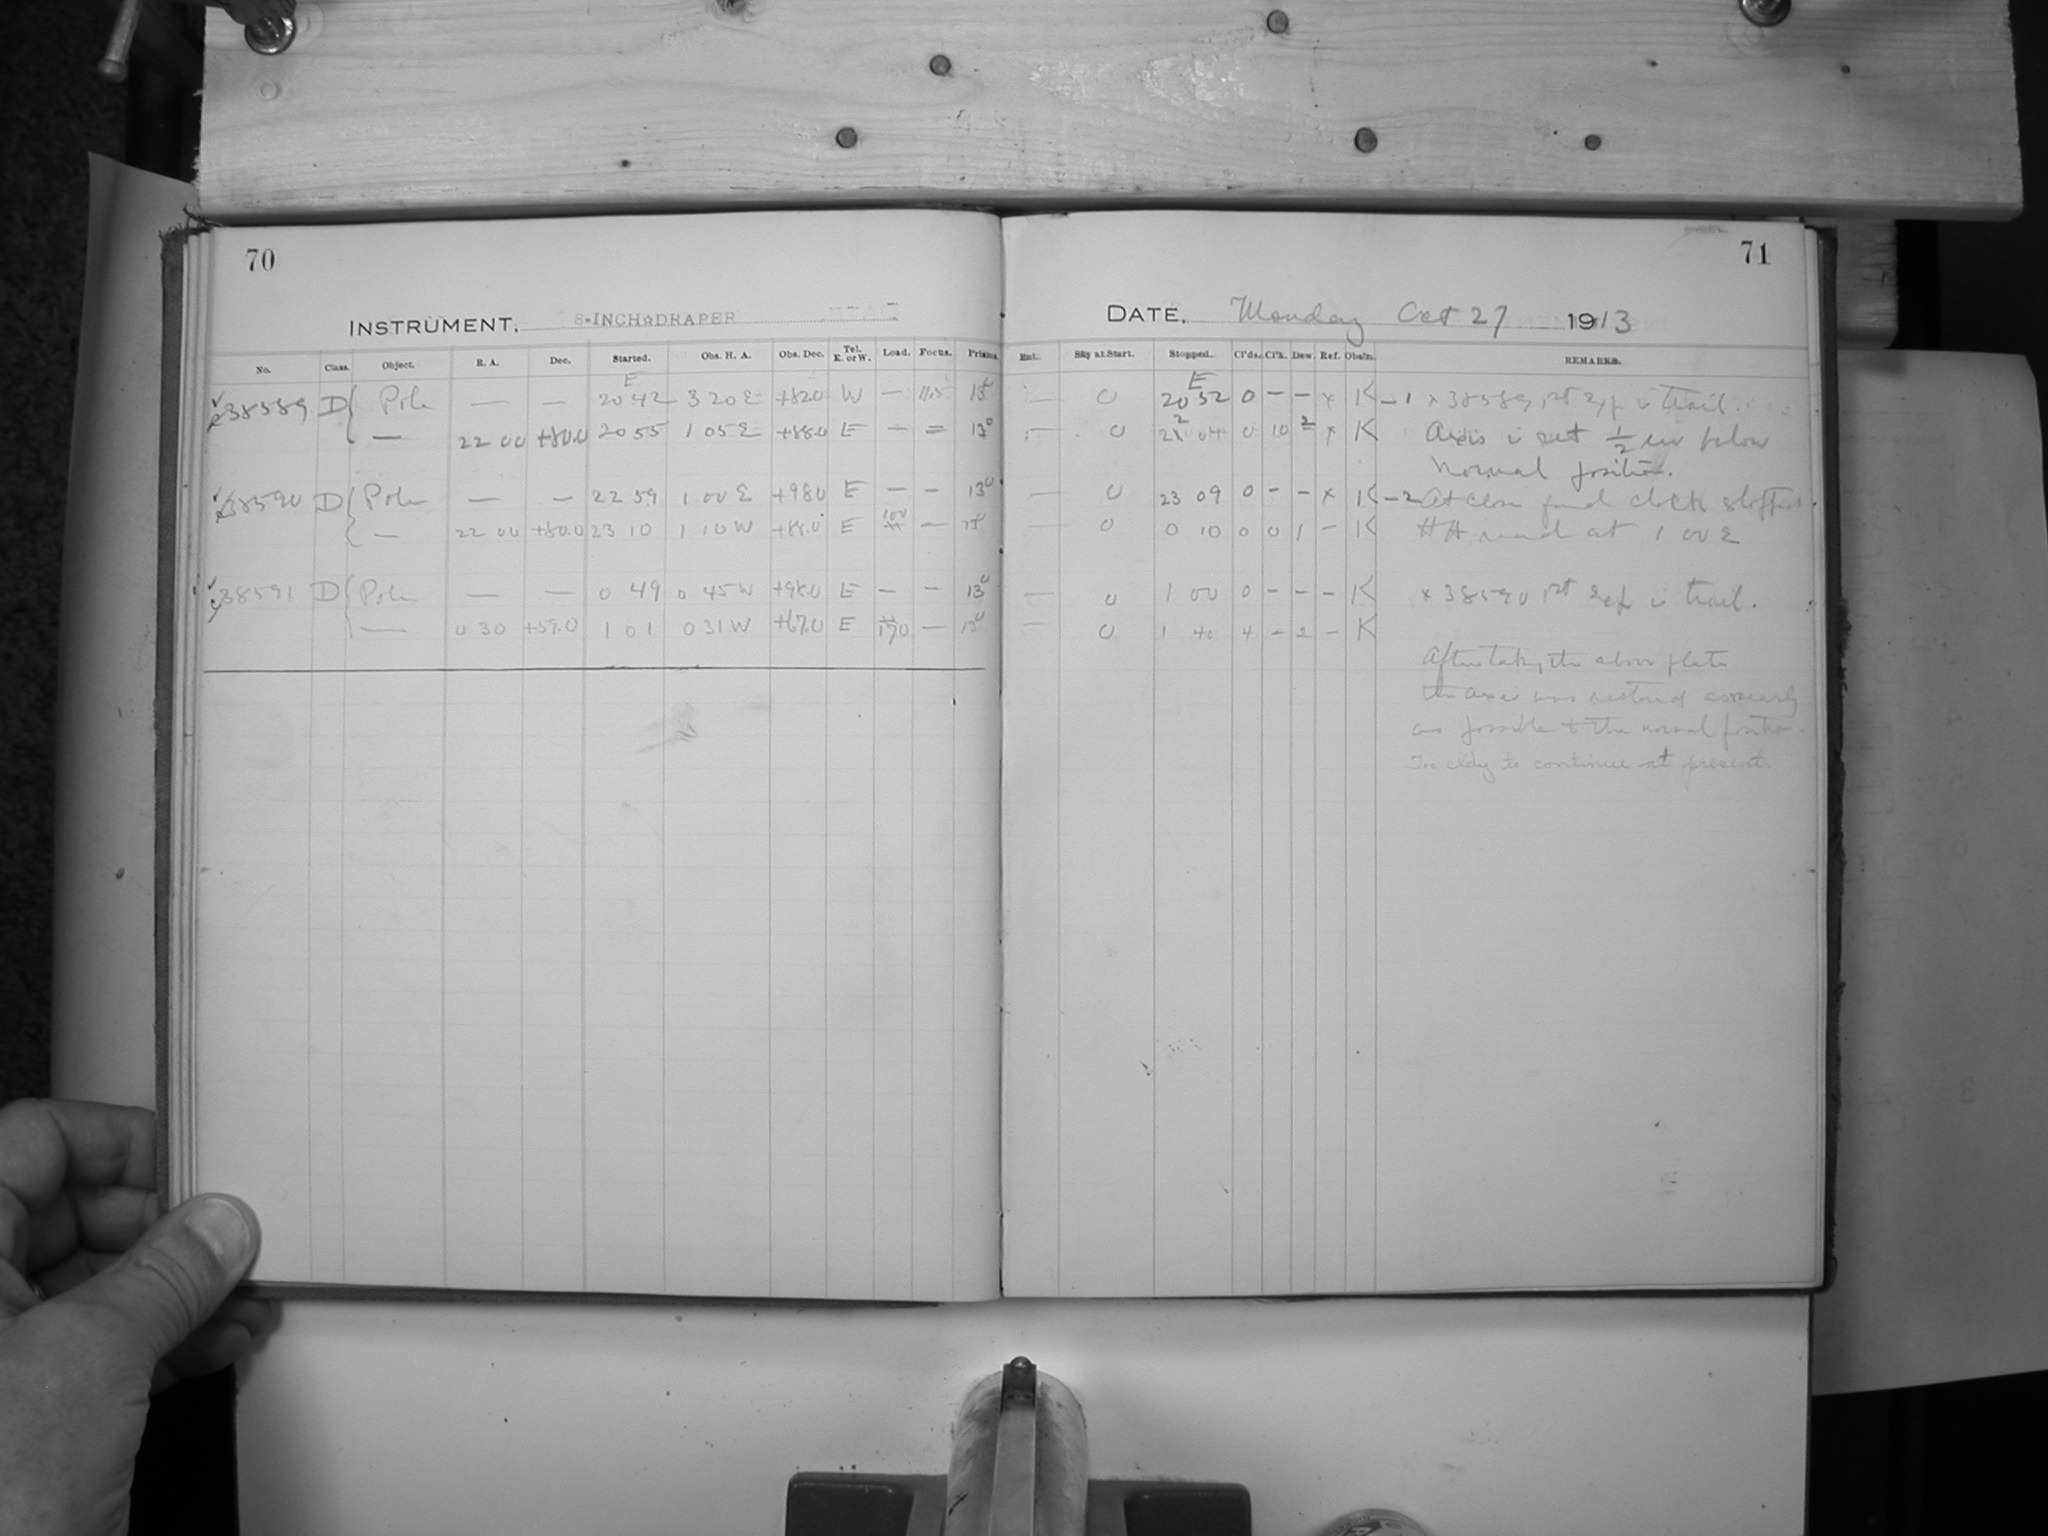 70
71
INSTRUMENT. 8-INCH☆DRAPER
DATE. Monday Oct 27 1913
No. Class. Object. R. A. Dec. Started. Obs. H. A. Obs. Dec. Tel. E. or W. Load. Focus. Prisms.
Sky at Start. Stopped. Cl'ds. Cl'k. Dew. Ref. Obs'n. REMARKS.
E
E
38589 D { Pole — — 20 42 3 20 E +82.0 W — 11.5
O 20 52 0 - - x K - 1 x 38589 1st exp is trail.
— 22 00 +80.0 20 55 1 05 E +88.0 E — =
O 04 0 10 2 x K Axis is set 1/2 below
Normal position.
38590 D { Pole — — 22 59 1 00 E +98.0 E - - 13
— O 23 09 0 - - x K - 2 At close found clock stopped.
— 22 00 +80.0 23 10 1 10 W +88.0 E 100 — 13
— O 0 10 0 0 1 - K HA read at 1 00 E
38591 D { Pole — — 0 49 0 45 W +98.0 E - - 13
— O 1 00 0 - - - K x 38590 1st exp is trail.
— 0 30 +59.0 1 01 0 31 W +67.0 E 170 — 13
— O 1 40 4 - 2 - K
After taking the above plate
the axis was restored as nearly
as possible to the normal position.
Too cldy to continue at present.